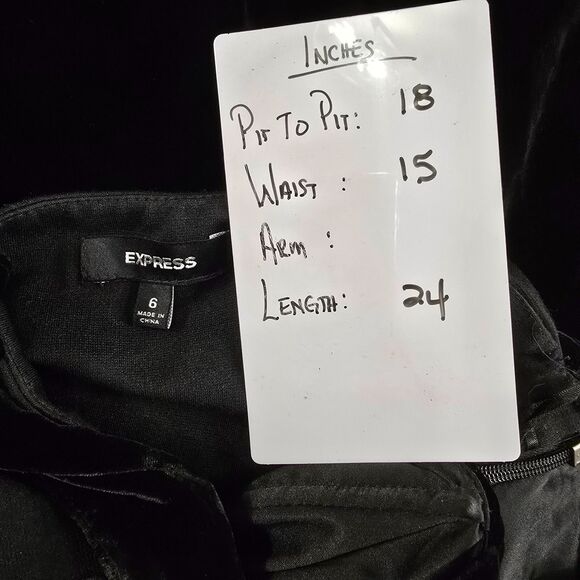 INCHES
PIT TO PIT: 18
WAIST : 15
ARM :
LENGTH: 24
EXPRESS
6
MADE IN
CHINA